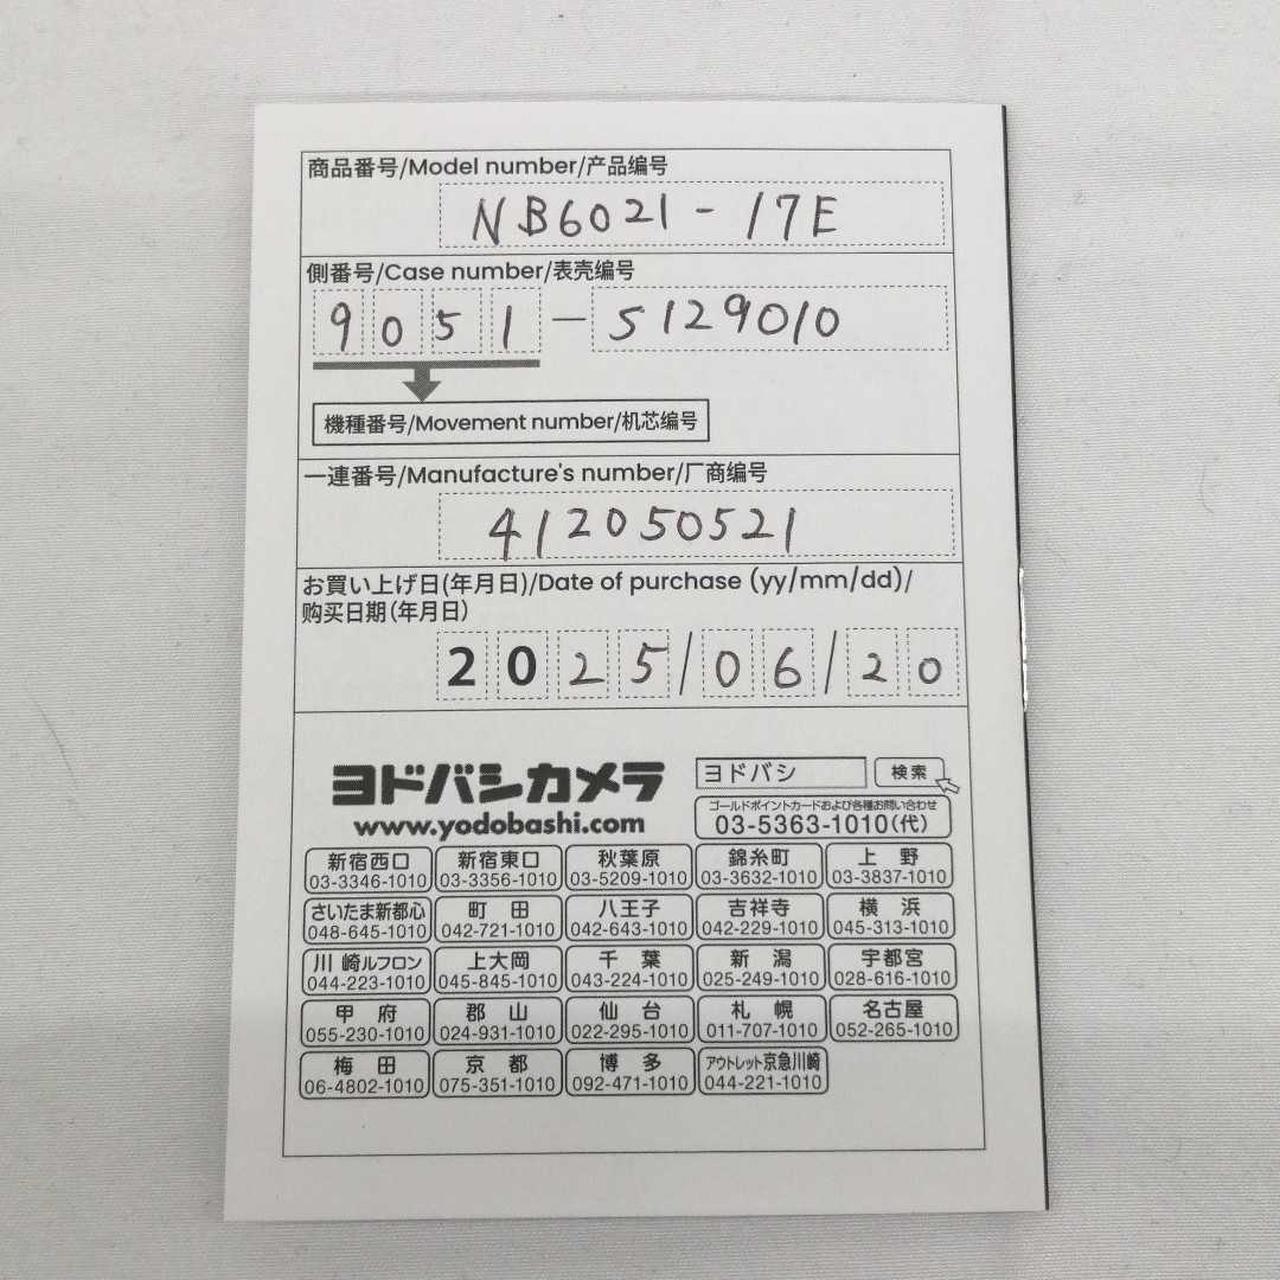 商品番号/Model number/产品编号
NB6021-17E
側番号/Case number/表壳编号
9051-5129010
機種番号/Movement number/机芯编号
一連番号/Manufacture's number/厂商编号
412050521
お買い上げ日(年月日)/Date of purchase (yy/mm/dd)/
购买日期(年月日)
2025/06/20
ヨドバシカメラ ヨドバシ 検索
www.yodobashi.com ゴールドポイントカードおよび各種お問い合わせ
03-5363-1010(代)
新宿西口 新宿東口 秋葉原 錦糸町 上野
03-3346-1010 03-3356-1010 03-5209-1010 03-3632-1010 03-3837-1010
さいたま新都心 町田 八王子 吉祥寺 横浜
048-645-1010 042-721-1010 042-643-1010 042-229-1010 045-313-1010
川崎ルフロン 上大岡 千葉 新潟 宇都宮
044-223-1010 045-845-1010 043-224-1010 025-249-1010 028-616-1010
甲府 郡山 仙台 札幌 名古屋
055-230-1010 024-931-1010 022-295-1010 011-707-1010 052-265-1010
梅田 京都 博多 アウトレット京急川崎
06-4802-1010 075-351-1010 092-471-1010 044-221-1010